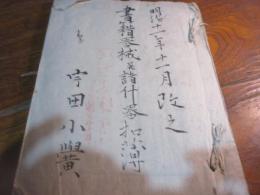 明治十一年十一月改之
書籍器械并諸什器扣簿
宇田小學黌